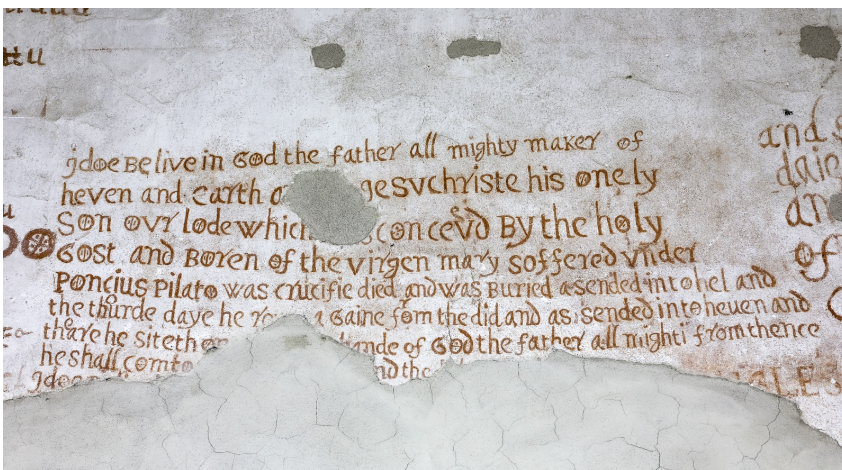 jdoe Belive in God the father all mighty maker of
heven and earth gesvchriste his onely
Son ovr lode which concevd By the holy
Gost and Boren of the virgen mary soffered vnder
Poncius Pilato was crucifie died and was Buried asended into hel and
the thurde daye he a Gaine fom the did and asended in to heven and
thare he siteth hande of God the father all mighti from thence
he shall comto nd the
jdoe
and
daie
of